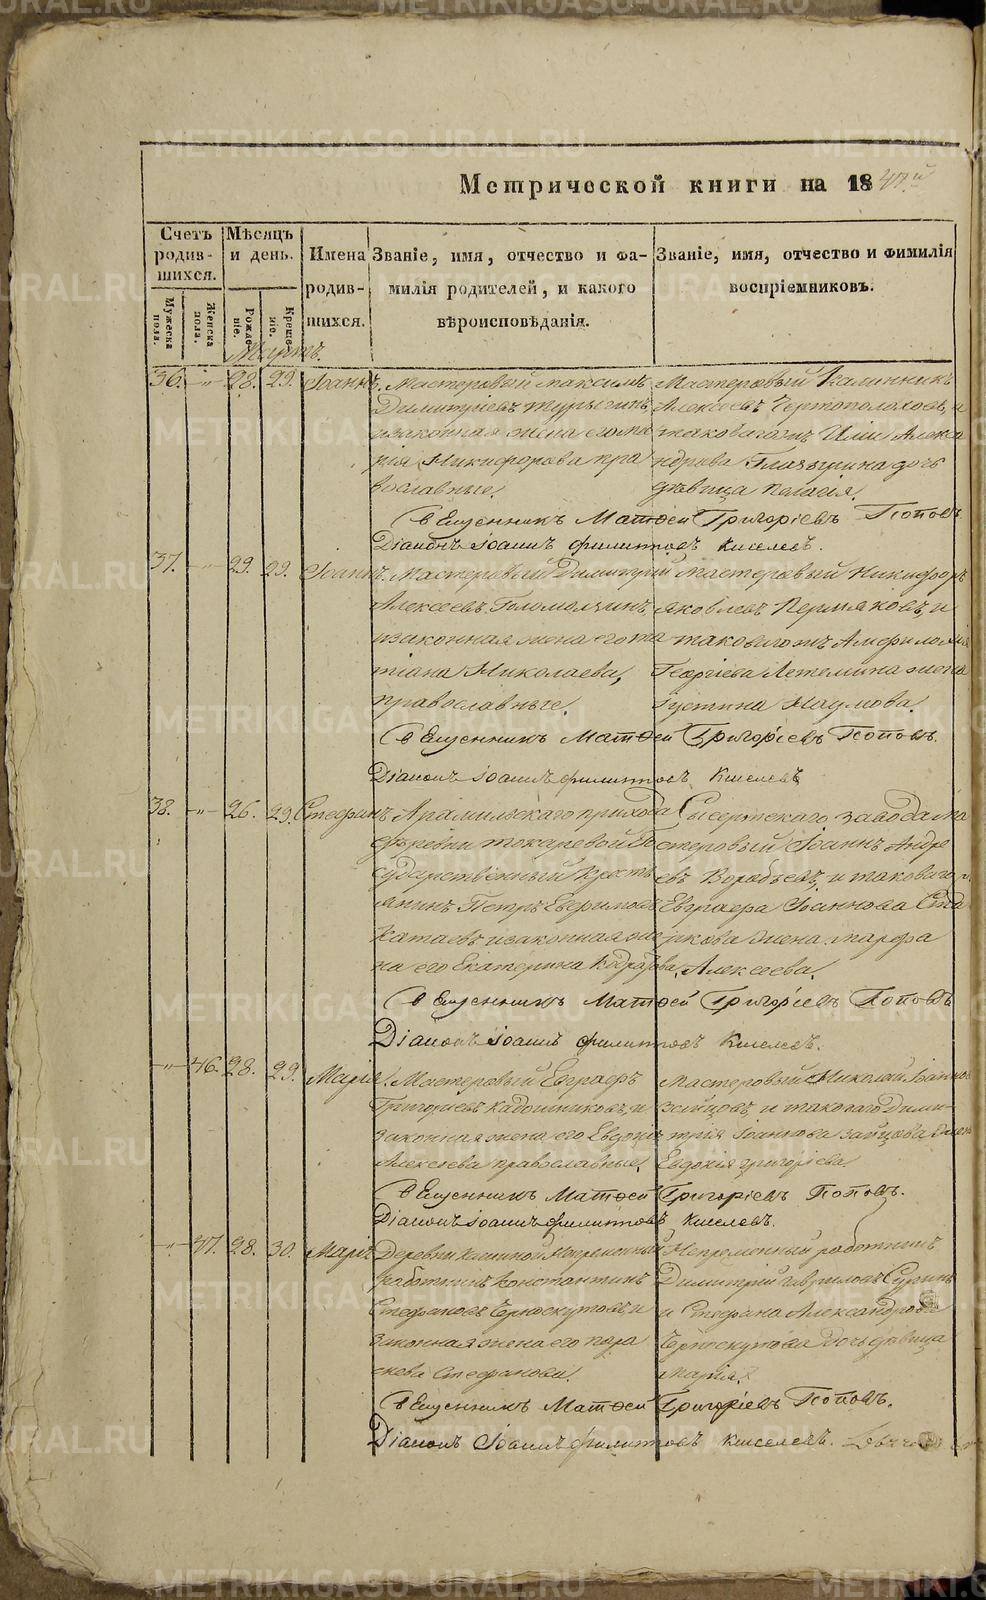 Метрической книги на 1847й
Счетъ родившихся.
Мѣсяцъ и день.
Имена родившихся.
Званіе, имя, отчество и фамилія родителей, и какого вѣроисповѣданія.
Званіе, имя, отчество и фимилія воспріемниковъ.
Мужеска пола.
Женска пола.
Рожденіе.
Крещеніе.
Мартъ.
36. — „ — 28. 29. Іоаннъ. Мастеровый Максимъ
Димитріевъ Турыгинъ,
и законная жена его Ма
рія Никифорова пра
вославные.
Мастеровый Калинникъ
Алексеевъ Чертополоховъ, и
таковагожъ Иліи Алекса
ндрова Глазырина дочь
дѣвица Пелагія.
Священникъ Матѳей Григоріевъ Поповъ
Діаконъ Іоаннъ Филиповъ Киселевъ.
37. — „ — 29. 29. Іоаннъ. Мастеровый Димитрій
Алексеевъ Голомолзинъ,
и законная жена его Та
тіана Николаева,
православные.
Мастеровый Никифоръ
Яковлевъ Пермяковъ, и
таковагожъ Амфилохія
Георгіева Летемина жена
Густина Наумова.
Священникъ Матѳей Григоріевъ Поповъ.
Діаконъ Іоаннъ Филиповъ Киселевъ
38. — „ — 26. 29. Стефанъ. Арамильскаго прихода
деревни Токаревой Го
сударственный кресть
янинъ Петръ Ефимовъ
Катаевъ и законная же
на его Екатерина Кодратова,
Сысертскаго завода ма
стеровый Іоаннъ Андре
евъ Воробьевъ, и таковагожъ
Евграфа Іоаннова Ста
ркова жена Марфа
Алексеева.
Священникъ Матѳей Григоріевъ Поповъ
Діаконъ Іоаннъ Филиповъ Киселевъ.
— „ — 46. 28. 29. Марія. Мастеровый Евграфъ
Григоріевъ Кадошниковъ, и
законная жена его Евдокія
Алексеева православные.
Мастеровый Николай Іоанновъ
Зайцовъ, и таковаго Дими-
трія Іоаннова Зайцова жена
Евдокія Григоріева.
Священникъ Матѳей Григоріевъ Поповъ.
Діаконъ Іоаннъ Филиповъ Киселевъ.
— „ — 47. 28. 30. Марія. Деревни Кашиной Непременный
работникъ Константинъ
Стефановъ Черноскутовъ и
законная жена его Пара
скева Стефанова.
Непременный работникъ
Димитрій Гавриловъ Суринъ
и Стефана Александрова
Черноскутова дочь дѣвица
Марія.
Священникъ Матѳей Григоріевъ Поповъ.
Діаконъ Іоаннъ Филиповъ Киселевъ.
METRIKI.GASO-URAL.RU